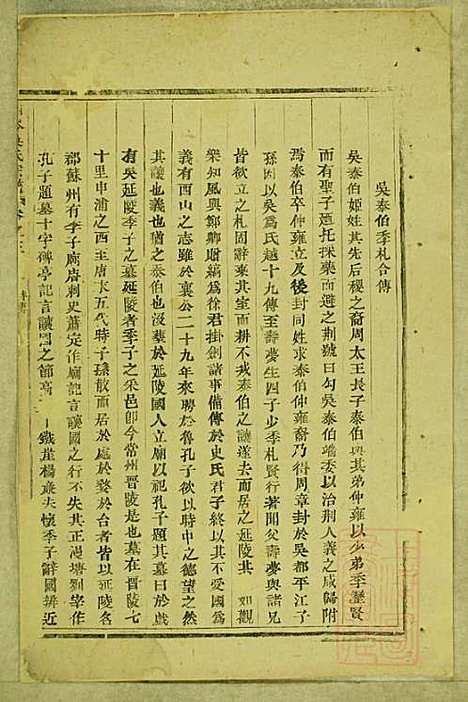 吳泰伯季札合傳
吳泰伯姬姓其先后稷之裔周太王長子泰伯與其弟仲雍以少弟季歷賢
而有聖子遜托採藥而避之荆號曰勾吳泰伯端委以治荆人義之咸歸附
焉泰伯卒仲雍立及後封同姓求泰伯仲雍裔乃得周章封於吳都平江子
孫因以吳爲氏越十九傳至壽夢生四子少季札賢行著聞父壽夢與諸兄
皆欲立之札固辭棄其室而耕不戒泰伯之讓遂去而居之延陵其 如觀
樂知風與鄭卿贈縞爲徐君掛劍諸事備傳於史氏君子終以其不受國爲
義有西山之志雖於襄公二十九年來聘於魯孔子欲以時中之德望之然
其讓也義也猶之泰伯也沒葬於延陵國人立廟以祀孔子題其墓曰於戲
有吳延陵季子之墓延陵者季子之采邑卽今常州晋陵是也墓在晋陵七
十里申浦之西至唐末五代時子孫散而居於處於婺於台者皆以延陵名
郡蘇州有季子廟唐刺史蕭定作廟記言讓國之行不失其正 塘劉宰作
孔子題墓十字碑亭記言讓國之節高 鐵崖楊廉夫懷季子辭國 近